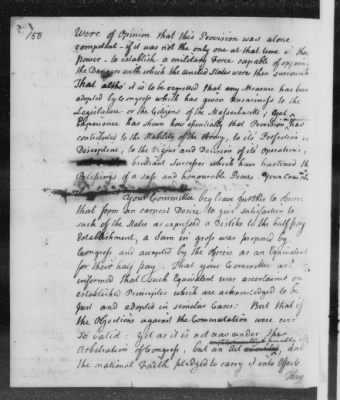 150
Were of Opinion that this Provision was alone
competent - if it was not the only one at that time in their
power - to establish a military Force capable of opposing
the Dangers with which the United States were then surrounded
That altho' it is to be regretted that any Measure has been
adopted by Congress which has given Uneasiness to the
Legislature or the Citizens of the Massachusetts; Yet
Experience has shewn how essentially that Provision has
contributed to the Stability of the Army, to it's Perfection in
Discipline, to the Vigour and Decision of it's Operations,
brilliant Successes which have hastened the
Blessings of a safe and honourable Peace upon
Your Committee beg leave further to observe
that from an earnest Desire to give satisfaction to
such of the States as expressed a Dislike to the half pay
Establishment, a Sum in gross was proposed by
Congress and accepted by the Officers as an Equivalent
for their half pay. That your Committee are
informed that such Equivalent was ascertained on
established Principles which are acknowledged to be
just and adopted in similar Cases: But that if
the Objections against the Commutation were ever
so valid: Yet as it is not now under the
Arbitration of Congress, but an Act and
the national Faith pledged to carry it into Effect
they